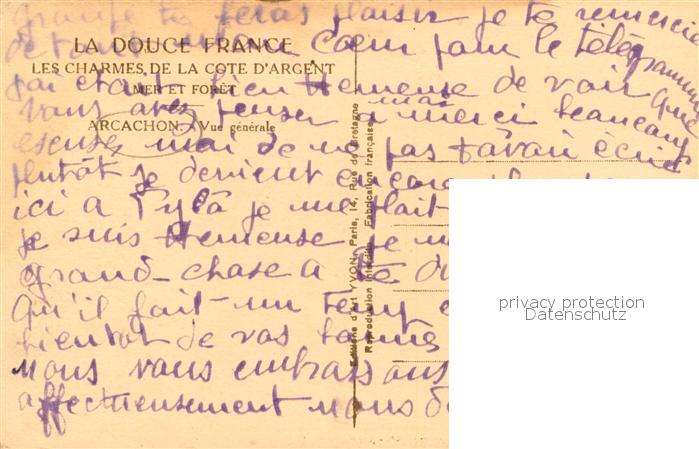 te feras plaisir je te remercie
de tout mon Cœur pour le télégramme
LA DOUCE FRANCE
LES CHARMES DE LA COTE D'ARGENT
MER ET FORÊT
ARCACHON. - Vue générale
j'ai était bien Hereuse de voir que
vous avez penser a moi merci beaucoup
escuse moi de ne pas t'avoir écrit
plutôt je devient
ici a Pyla je me plait
je suis Hereuse je
grand-chose a te
qu'il fait un temp
bientot de vos
nous vous embrassons
affectueusement nous
Editions d'art YVON, Paris, 14, Rue de Bretagne
Reproduction interdite. Fabrication française
privacy protection
Datenschutz